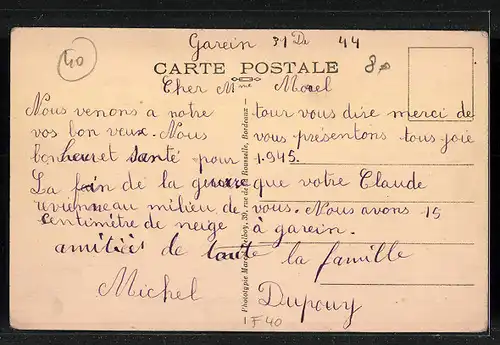 40
Garein 31 De 44
CARTE POSTALE
8
Cher Mme Morel
Nous venons a notre tour vous dire merci de
vos bon veux. Nous vous présentons tous joie
bonheur et santé pour 1.945.
La fin de la guerre que votre Claude
revienne au milieu de vous. Nous avons 15
centimètre de neige à garein.
amitiés de toute la famille
Michel Dupouy
Phototype Marcel Delboy, 39, rue de la Rousselle, Bordeaux
1F40